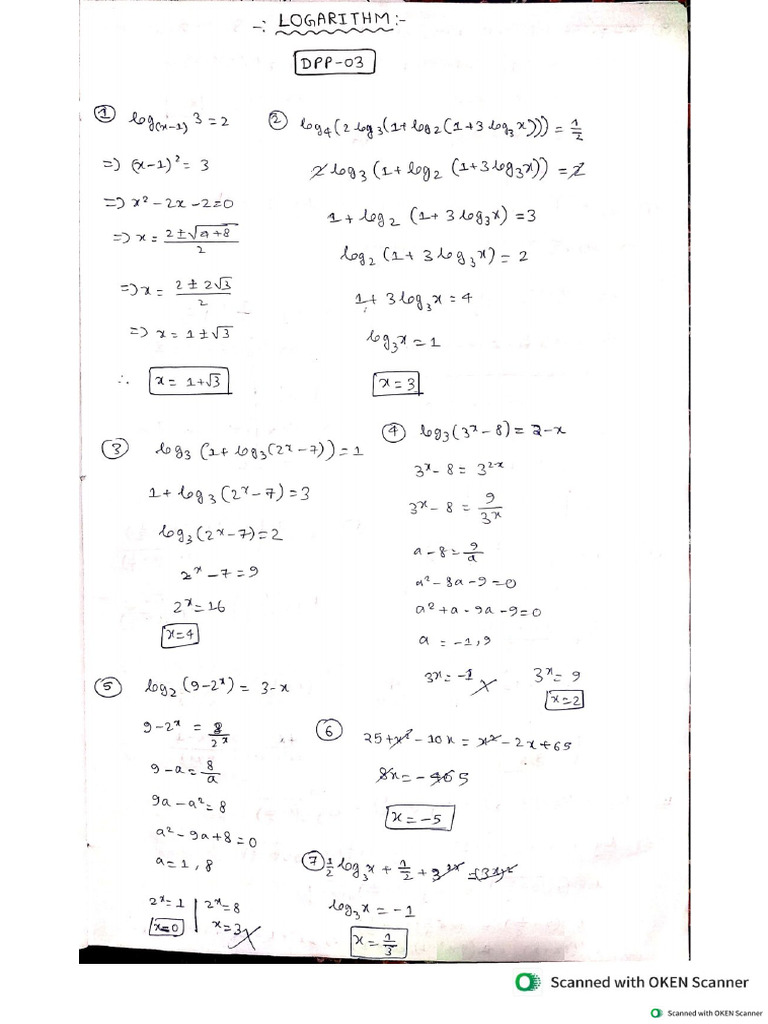 -: LOGARITHM :-
DPP-03
① log(x-1) 3 = 2
=) (x-1)² = 3
=) x² - 2x - 2 = 0
=) x = 2 ± √4+8 / 2
=) x = 2 ± 2√3 / 2
=) x = 1 ± √3
∴ x = 1+√3
② log₄(2 log₃(1+log₂(1+3 log₃x))) = 1/2
2 log₃(1+log₂(1+3 log₃x)) = 2
1 + log₂(1+3 log₃x) = 3
log₂(1+3 log₃x) = 2
1 + 3 log₃x = 4
log₃x = 1
x = 3
③ log₃(1+log₃(2ˣ-7)) = 1
1 + log₃(2ˣ-7) = 3
log₃(2ˣ-7) = 2
2ˣ - 7 = 9
2ˣ = 16
x = 4
④ log₃(3ˣ-8) = 2-x
3ˣ - 8 = 3²⁻ˣ
3ˣ - 8 = 9/3ˣ
a - 8 = 9/a
a² - 8a - 9 = 0
a² + a - 9a - 9 = 0
a = -1, 9
3ˣ = -1 3ˣ = 9
x = 2
⑤ log₂(9-2ˣ) = 3-x
9 - 2ˣ = 8/2ˣ
9 - a = 8/a
9a - a² = 8
a² - 9a + 8 = 0
a = 1, 8
2ˣ = 1 | 2ˣ = 8
x = 0 | x = 3
⑥ 25 + x² - 10x = x² - 2x + 65
x = -5
⑦ 1/2 log₃x + 1/2 + 3²ˣ = (3ˣ)²
log₃x = -1
x = 1/3
Scanned with OKEN Scanner
Scanned with OKEN Scanner